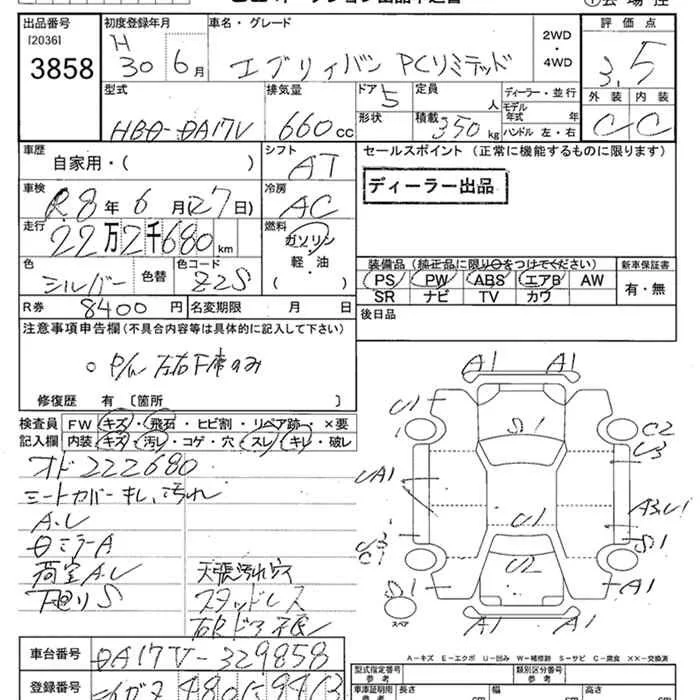 出品番号
[2036]
3858
初度登録年月
H 30 6月
車名・グレード
エブリィバン PCリミテッド
2WD
・
4WD
評価点
3.5
外装 内装
C C
型式
HBD-DA17V
排気量
660cc
ドア 5
形状
定員 人
積載 350kg
ディーラー・並行
モデル年式 年
ハンドル 左・右
車歴
自家用・( )
シフト
AT
セールスポイント (正常に機能するものに限ります)
ディーラー出品
車検
R8年6月(27日)
冷房
AC
走行
22万2千680km
燃料
ガソリン
軽・油
( )
色
シルバー
色替
色コード
Z2S
装備品 (純正品に限り○をつけてください)
PS PW ABS エアB AW
SR ナビ TV カワ
新車保証書
有・無
R券 8400円
名変期限 月 日
後日品
注意事項申告欄 (不具合内容等は具体的に記入して下さい)
○ P/W 左右F席のみ
修復歴 有 〔箇所 〕
検査員
記入欄
FW キズ・飛石・ヒビ割・リペア跡・×要
内装 キズ・汚レ・コゲ・穴・スレ・キレ・破レ
オド222680
シートカバー キレ、汚れ
A.U
ロミラーA
荷室A.U 天張汚れ
下廻りS スタッドレス
A1 A1
U1
S1
C2
U3
UA1
A3,U1
U1
U3
C1
S1
U2
S1
A1
A1 A1
スペア
A-キズ E-エクボ U-凹み W-補修跡 S-サビ C-腐食 ××-交換済
車台番号
DA17V-329858
登録番号
480
型式指定番号
参考
類別区分番号
参考
車庫証明用
参考
長さ cm
幅 cm
高さ cm